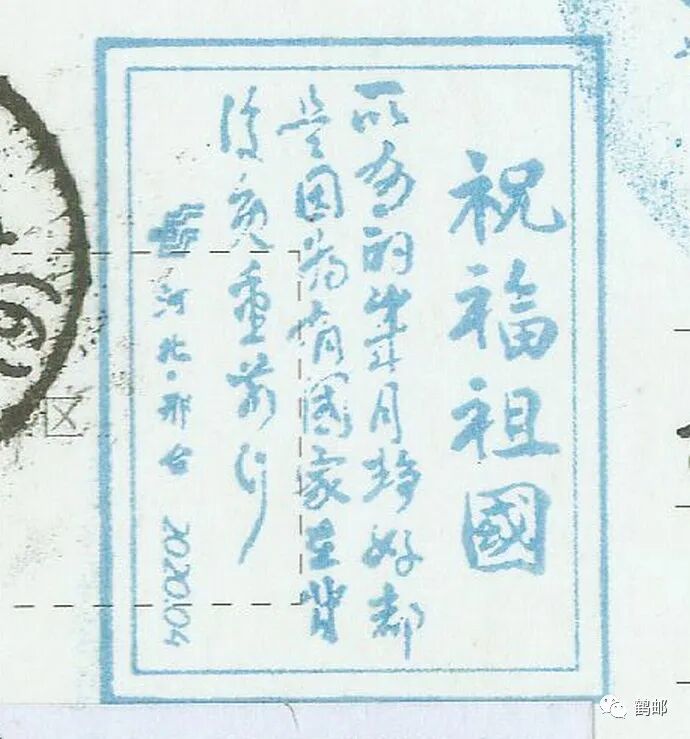 祝福祖國
所有的歲月静好都
是因为有國家在背
後負重前行
河北·邢台 2020.04
鹤邮